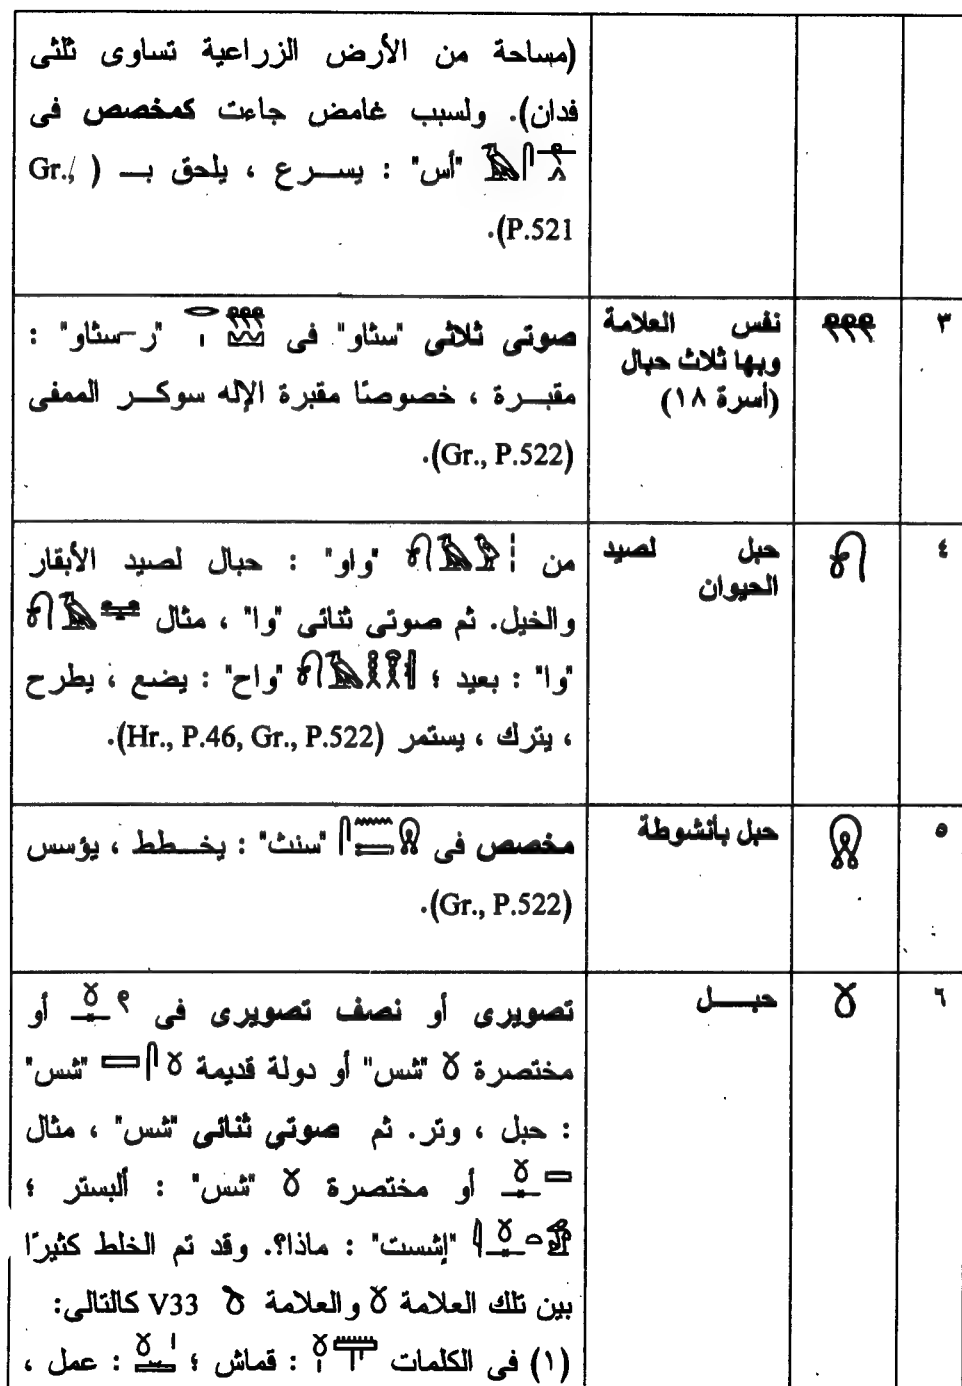 (مساحة من الأرض الزراعية تساوى ثلثى
فدان). ولسبب غامض جاءت كمخصص فى
"أس" : يسرع ، يلحق بـ (Gr.,
P.521).
٣
نفس العلامة
وبها ثلاث حبال
(أسرة ١٨)
صوتى ثلاثى "سثاو" فى "ر-سثاو" :
مقبرة ، خصوصًا مقبرة الإله سوكر الممفى
(Gr., P.522).
٤
حبل لصيد
الحيوان
من "واو" : حبال لصيد الأبقار
والخيل. ثم صوتى ثنائى "وا" ، مثال
"وا" : بعيد ؛ "واح" : يضع ، يطرح
، يترك ، يستمر (Hr., P.46, Gr., P.522).
٥
حبل بأنشوطة
مخصص فى "سنث" : يخطط ، يؤسس
(Gr., P.522).
٦
حبل
تصويرى أو نصف تصويرى فى أو
مختصرة "شس" أو دولة قديمة "شس"
: حبل ، وتر. ثم صوتي ثنائى "شس" ، مثال
أو مختصرة "شس" : ألبستر ؛
"إشست" : ماذا؟. وقد تم الخلط كثيرًا
بين تلك العلامة والعلامة V33 كالتالى:
(١) فى الكلمات : قماش ؛ : عمل ،